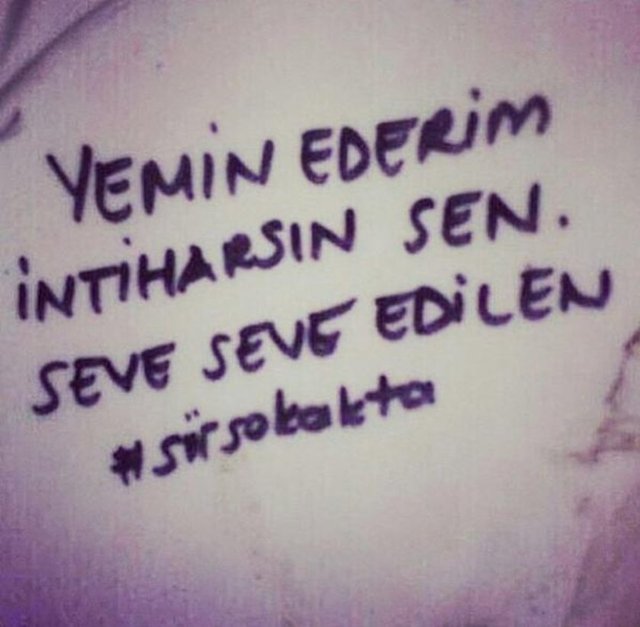 YEMİN EDERİM
İNTİHARSIN SEN.
SEVE SEVE EDİLEN
#şiirsokakta